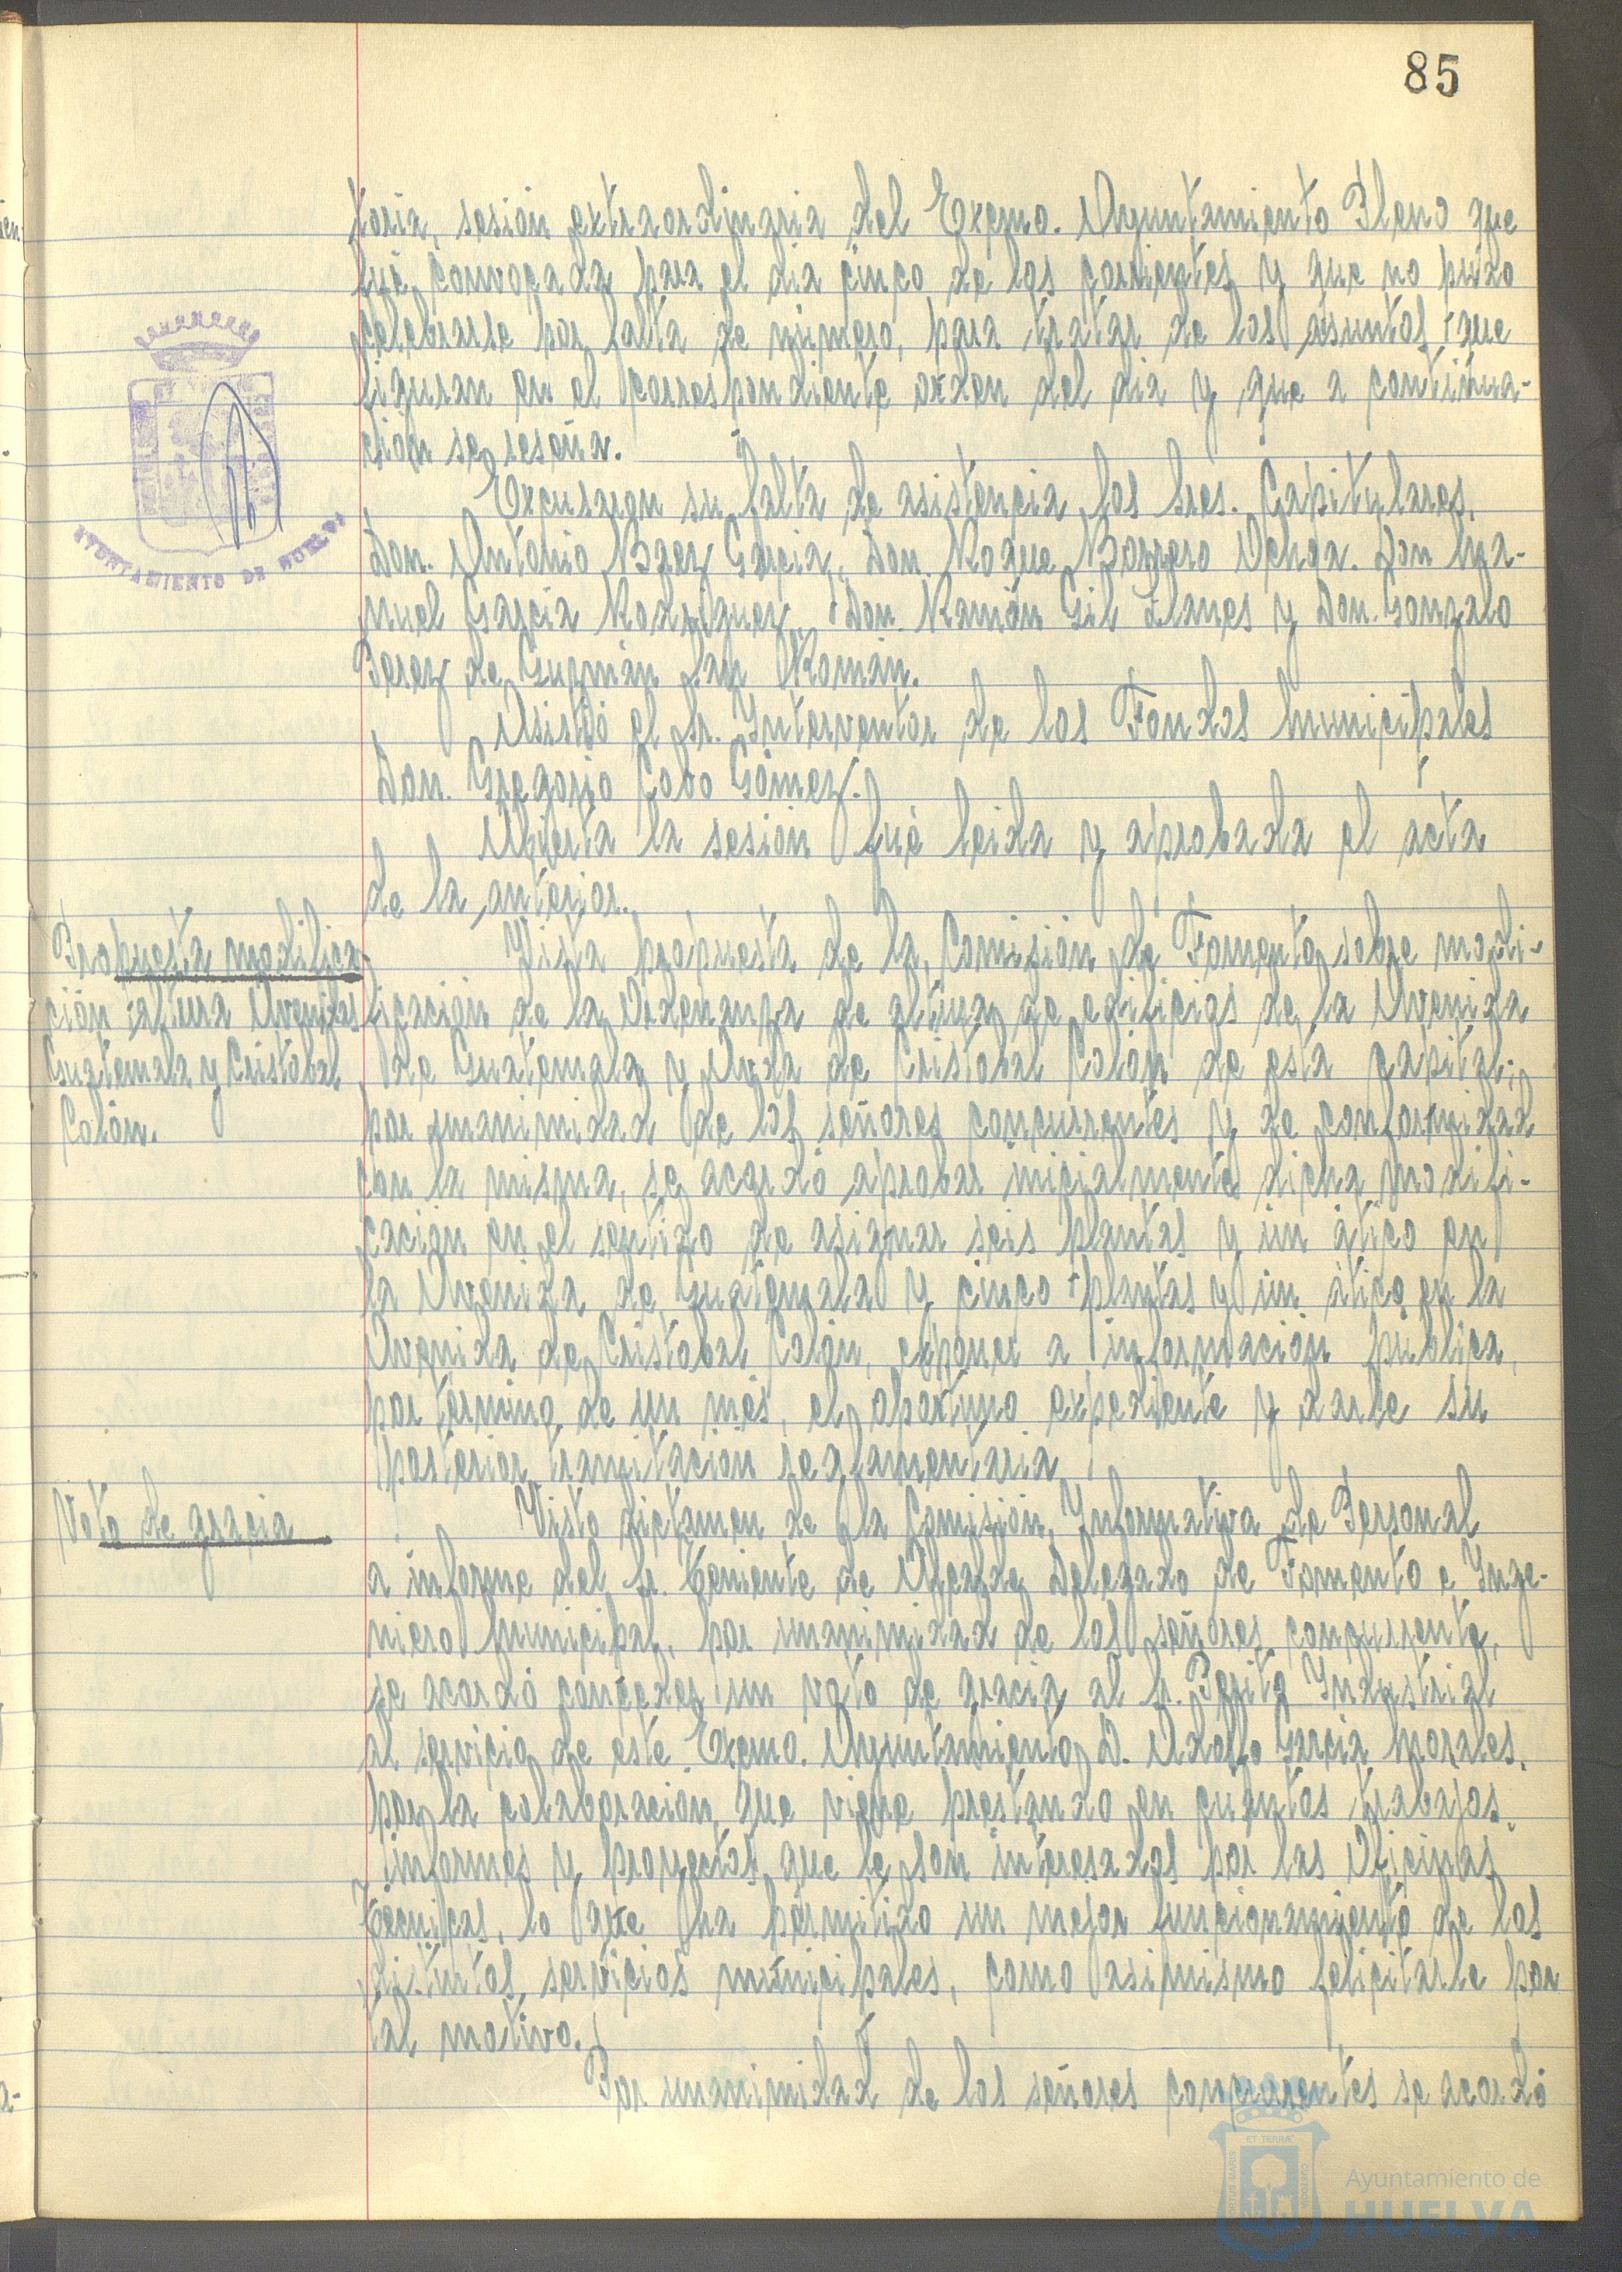 85
toria, sesión extraordinaria del Excmo. Ayuntamiento Pleno que
fué convocada para el dia cinco de los corrientes y que no pudo
celebrarse por falta de número, para tratar de los asuntos que
figuran en el correspondiente orden del dia y que a continua-
ción se reseña.
Excusaron su falta de asistencia los Sres. Capitulares,
Don. Antonio Baez Garcia, Don. Roque Barrero Ochoa. Don Ma-
nuel Garcia Rodriguez, Don. Ramón Gil Llanes y Don. Gonzalo
Perez de Guzmán San Román.
Asistió el Sr. Interventor de los Fondos Municipales
Don. Gregorio Cobo Gómez.
Abierta la sesión fué leida y aprobada el acta
de la anterior.
Propuesta modifica
ción altura Avenidas
Guatemala y Cristobal
Colón.
Vista propuesta de la Comisión de Fomento sobre modi-
ficación de la Ordenanza de altura de edificios de la Avenida
de Guatemala y Avda de Cristobal Colón de esta capital;
por unanimidad de los señores concurrentes y de conformidad
con la misma, se acordó aprobar inicialmente dicha modifi-
cación en el sentido de asignar seis plantas y un ático en
la Avenida de Guatemala y cinco plantas y un ático en la
Avenida de Cristobal Colón, exponer a información pública,
por término de un mes, el oportuno expediente y darle su
posterior tramitación reglamentaria
Voto de gracia
Visto dictamen de la Comisión Informativa de Personal
a informe del Sr. Teniente de Alcalde Delegado de Fomento e Inge-
niero Municipal, por unanimidad de los señores concurrente,
se acordó conceder un voto de gracia al Sr. Perito Industrial
al servicio de este Excmo. Ayuntamiento D. Adolfo Garcia Morales,
por la colaboración que viene prestando en cuantos trabajos,
informes y proyectos que le son interesados por las Oficinas
Técnicas, lo que ha permitido un mejor funcionamiento de los
distintos servicios municipales, como asimismo felicitarle por
tal motivo.
Por unanimidad de los señores concurrentes se acordó
AYUNTAMIENTO DE HUELVA
Ayuntamiento de
HUELVA